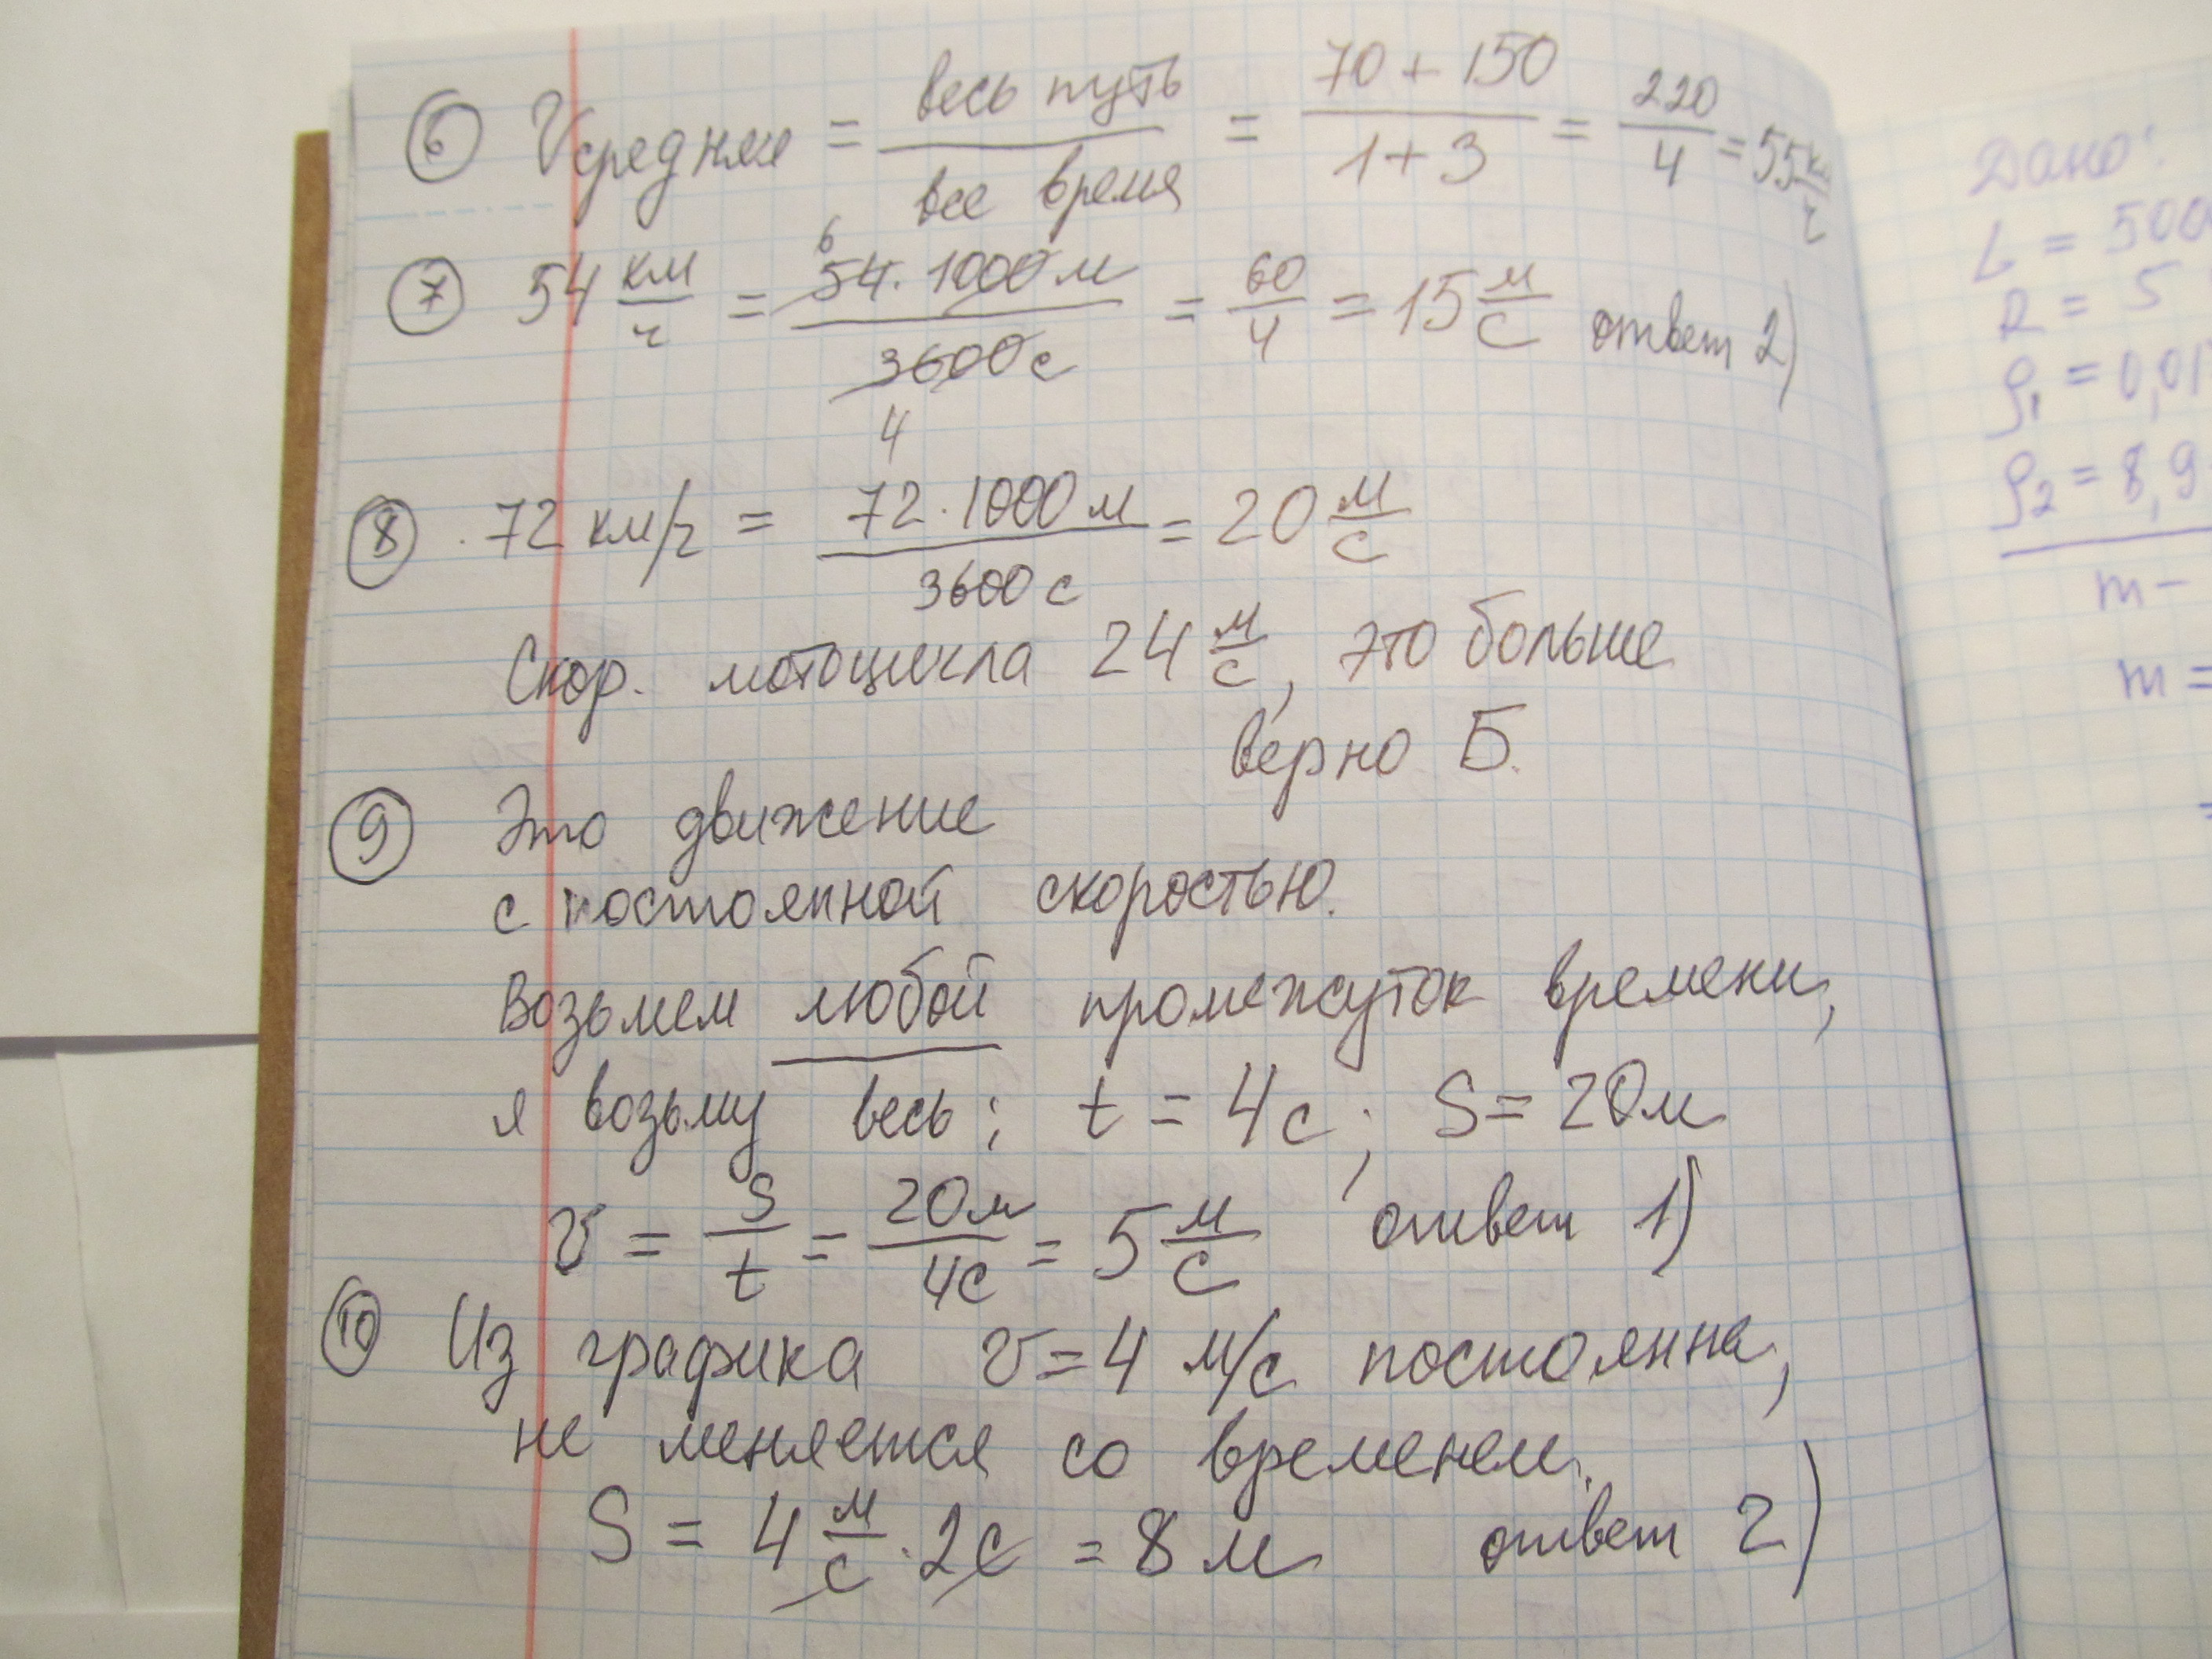 6 Vсредняя = весь путь / все время = 70 + 150 / 1 + 3 = 220 / 4 = 55 км/ч
7 54 км/ч = 54 · 1000 м / 3600 с = 60 / 4 = 15 м/с ответ 2)
6
4
8 72 км/ч = 72 · 1000 м / 3600 с = 20 м/с
Скор. мотоцикла 24 м/с, это больше
верно Б.
9 Это движение
с постоянной скоростью.
Возьмем любой промежуток времени,
я возьму весь; t = 4 с; S = 20 м
v = S / t = 20 м / 4 с = 5 м/с ответ 1)
10 Из графика v = 4 м/с постоянна,
не меняется со временем.
S = 4 м/с · 2 с = 8 м ответ 2)
Дано:
L = 500
R = 5
ρ1 = 0,01
ρ2 = 8,9
m –
m =
=